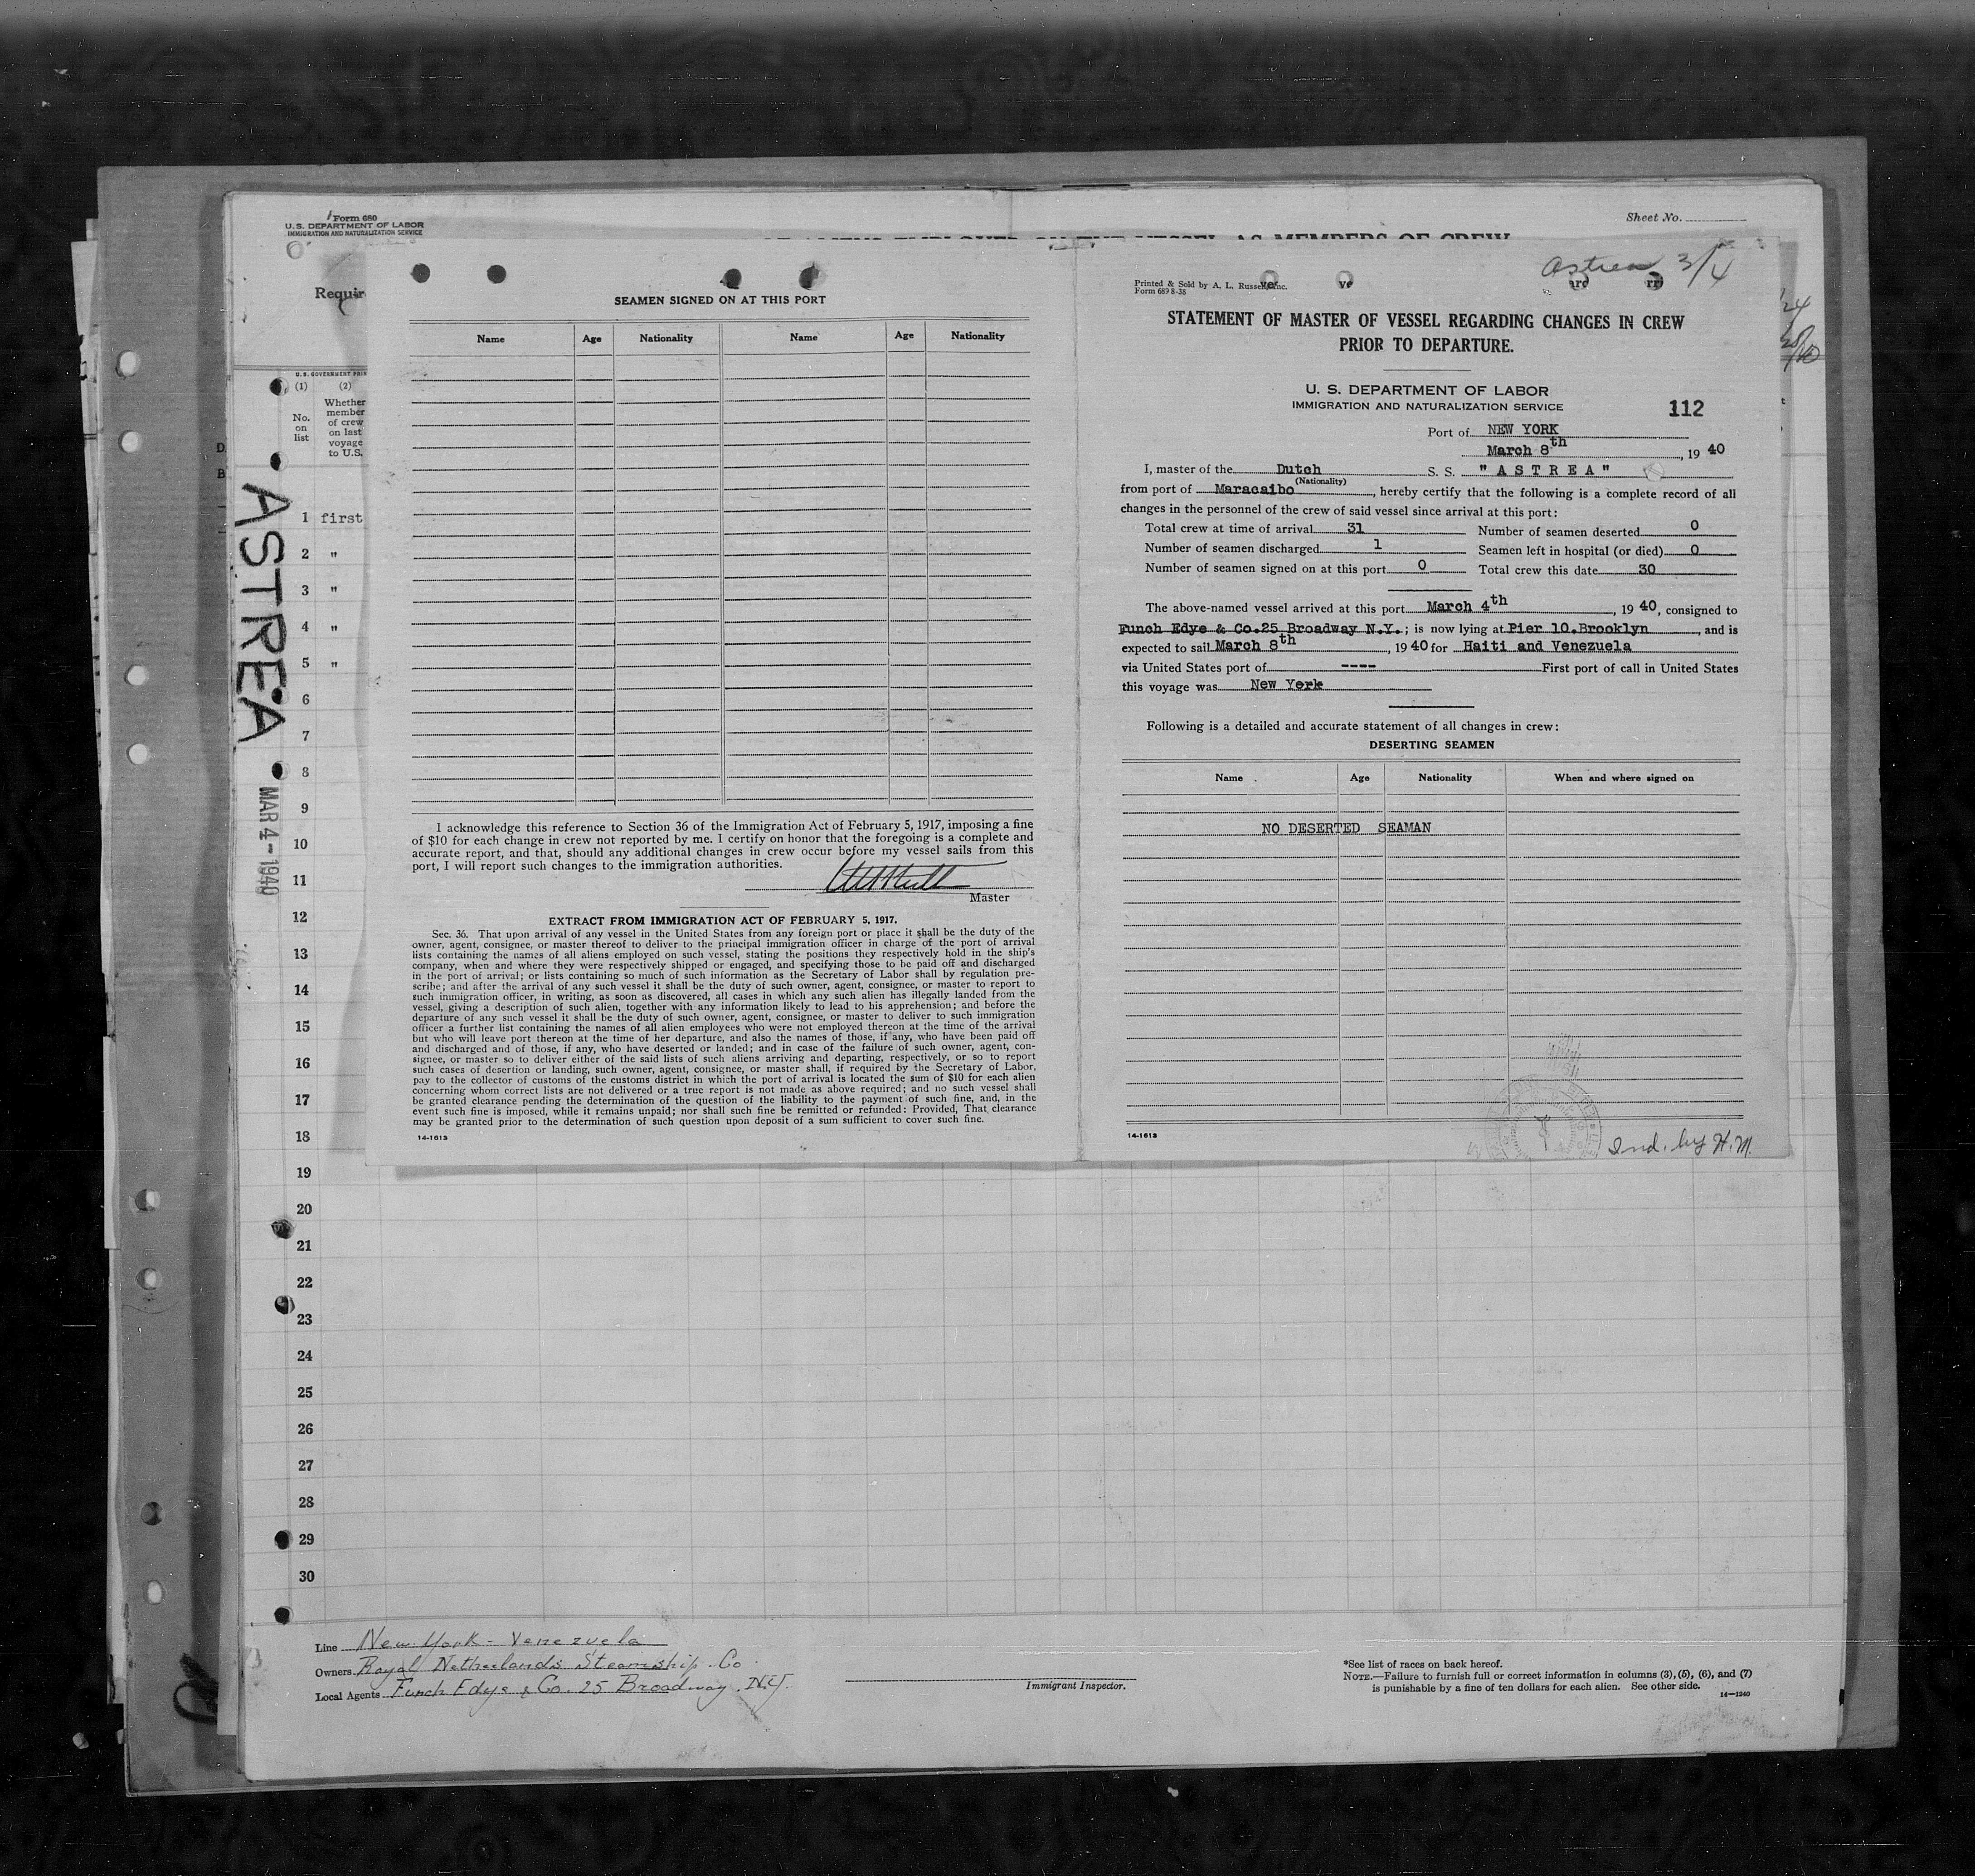 Form 680
U. S. DEPARTMENT OF LABOR
IMMIGRATION AND NATURALIZATION SERVICE
Sheet No.
Requir
U. S. GOVERNMENT PRIN
(1) (2)
No. on list
Whether member of crew on last voyage to U.S.
ASTREA
MAR 4 - 1940
1 first
2 "
3 "
4 "
5 "
6
7
8
9
10
11
12
13
14
15
16
17
18
19
20
21
22
23
24
25
26
27
28
29
30
SEAMEN SIGNED ON AT THIS PORT
Name Age Nationality Name Age Nationality
I acknowledge this reference to Section 36 of the Immigration Act of February 5, 1917, imposing a fine
of $10 for each change in crew not reported by me. I certify on honor that the foregoing is a complete and
accurate report, and that, should any additional changes in crew occur before my vessel sails from this
port, I will report such changes to the immigration authorities.
Master
EXTRACT FROM IMMIGRATION ACT OF FEBRUARY 5, 1917.
Sec. 36. That upon arrival of any vessel in the United States from any foreign port or place it shall be the duty of the
owner, agent, consignee, or master thereof to deliver to the principal immigration officer in charge of the port of arrival
lists containing the names of all aliens employed on such vessel, stating the positions they respectively hold in the ship's
company, when and where they were respectively shipped or engaged, and specifying those to be paid off and discharged
in the port of arrival; or lists containing so much of such information as the Secretary of Labor shall by regulation pre-
scribe; and after the arrival of any such vessel it shall be the duty of such owner, agent, consignee, or master to report to
such immigration officer, in writing, as soon as discovered, all cases in which any such alien has illegally landed from the
vessel, giving a description of such alien, together with any information likely to lead to his apprehension; and before the
departure of any such vessel it shall be the duty of such owner, agent, consignee, or master to deliver to such immigration
officer a further list containing the names of all alien employees who were not employed thereon at the time of the arrival
but who will leave port thereon at the time of her departure, and also the names of those, if any, who have been paid off
and discharged and of those, if any, who have deserted or landed; and in case of the failure of such owner, agent, con-
signee, or master so to deliver either of the said lists of such aliens arriving and departing, respectively, or so to report
such cases of desertion or landing, such owner, agent, consignee, or master shall, if required by the Secretary of Labor,
pay to the collector of customs of the customs district in which the port of arrival is located the sum of $10 for each alien
concerning whom correct lists are not delivered or a true report is not made as above required; and no such vessel shall
be granted clearance pending the determination of the question of the liability to the payment of such fine, and, in the
event such fine is imposed, while it remains unpaid; nor shall such fine be remitted or refunded: Provided, That clearance
may be granted prior to the determination of such question upon deposit of a sum sufficient to cover such fine.
14-1613
Astrea 3/4
Printed & Sold by A. L. Russell, Inc.
Form 689 8-38
STATEMENT OF MASTER OF VESSEL REGARDING CHANGES IN CREW
PRIOR TO DEPARTURE.
U. S. DEPARTMENT OF LABOR
IMMIGRATION AND NATURALIZATION SERVICE
112
Port of NEW YORK
March 8th, 19 40
I, master of the Dutch S. S. "ASTREA"
(Nationality)
from port of Maracaibo, hereby certify that the following is a complete record of all
changes in the personnel of the crew of said vessel since arrival at this port:
Total crew at time of arrival 31 Number of seamen deserted 0
Number of seamen discharged 1 Seamen left in hospital (or died) 0
Number of seamen signed on at this port 0 Total crew this date 30
The above-named vessel arrived at this port March 4th, 19 40, consigned to
Funch Edye & Co.25 Broadway N.Y.; is now lying at Pier 10.Brooklyn, and is
expected to sail March 8th, 19 40 for Haiti and Venezuela
via United States port of ---- First port of call in United States
this voyage was New York
Following is a detailed and accurate statement of all changes in crew:
DESERTING SEAMEN
Name Age Nationality When and where signed on
NO DESERTED SEAMAN
14-1613
Ind. by H.M.
Line New York - Venezuela
Owners Royal Netherlands Steamship Co.
Local Agents Funch Edye & Co. 25 Broadway. N.Y.
Immigrant Inspector.
*See list of races on back hereof.
NOTE.—Failure to furnish full or correct information in columns (3), (5), (6), and (7)
is punishable by a fine of ten dollars for each alien. See other side.
14-1240